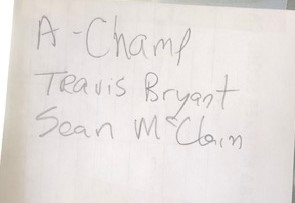 A-Champ
Travis Bryant
Sean McClain